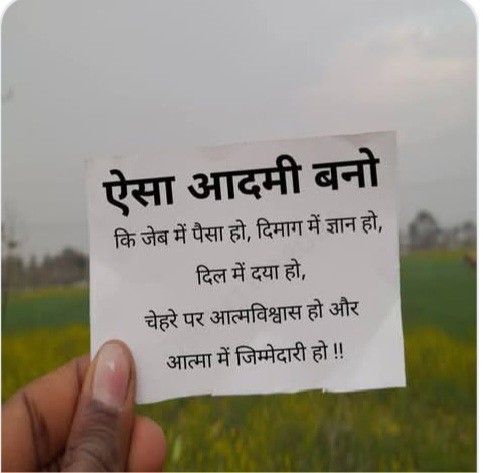 ऐसा आदमी बनो
कि जेब में पैसा हो, दिमाग में ज्ञान हो,
दिल में दया हो,
चेहरे पर आत्मविश्वास हो और
आत्मा में जिम्मेदारी हो !!